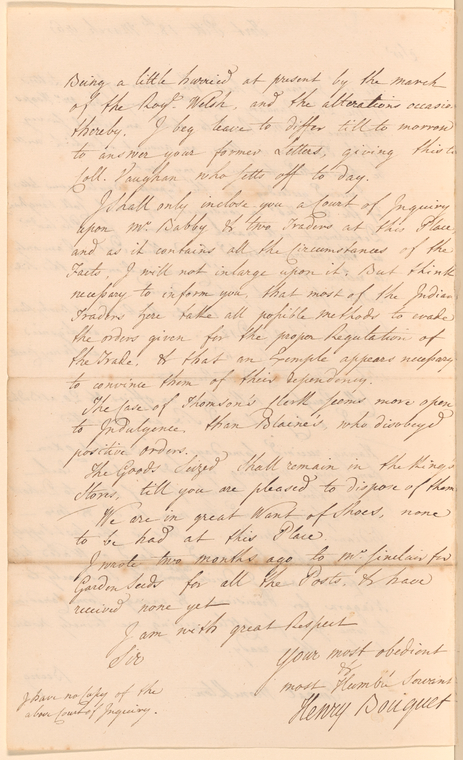 Being a little hurried at present by the march
of the Royl. Welsh, and the alterations occasion
thereby. I beg leave to differ till to morrow
to answer your former Letters, giving this to
Coll. Vaughan who setts off to day.
I shall only inclose you a Court of Inquiry
upon Mr. Babby & two Traders at this Place,
and as it contains all the Circumstances of the
Facts, I will not inlarge upon it. But think
necessary to inform you, that most of the Indian
Traders here take all possible methods to evade
the orders given for the proper Regulation of
the Trade. & that an Exemple appears necessary
to convince them of their dependency.
The Case of Thomson's Clerk seems more open
to Indulgence, than Blaine's, who disobey'd
positive orders.
The Goods Seized shall remain in the Kings
Stores, till you are pleased to dispose of them
We are in great Want of Shoes, none
to be had at this Place
I wrote two months ago to Mr. Sinclair for
Garden Seeds for all the Posts, & have
received none yet
I am with great Respect
Sir
Your most obedient
&
most Humble Servant
Henry Bouquet
I have no Copy of the
above Court of Inquiry.